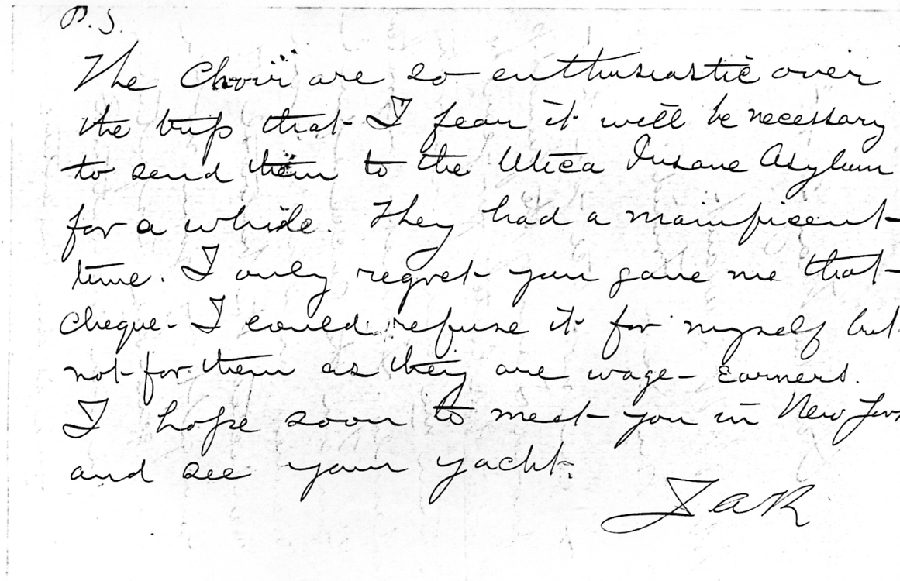 P.S.
The Choir are so enthusiastic over
the trip that I fear it will be necessary
to send them to the Utica Insane Asylum
for a while. They had a mainficent
time. I only regret you gave me that
cheque - I could refuse it for myself but
not for them as they are wage-earners.
I hope soon to meet you in New
and see your yacht.